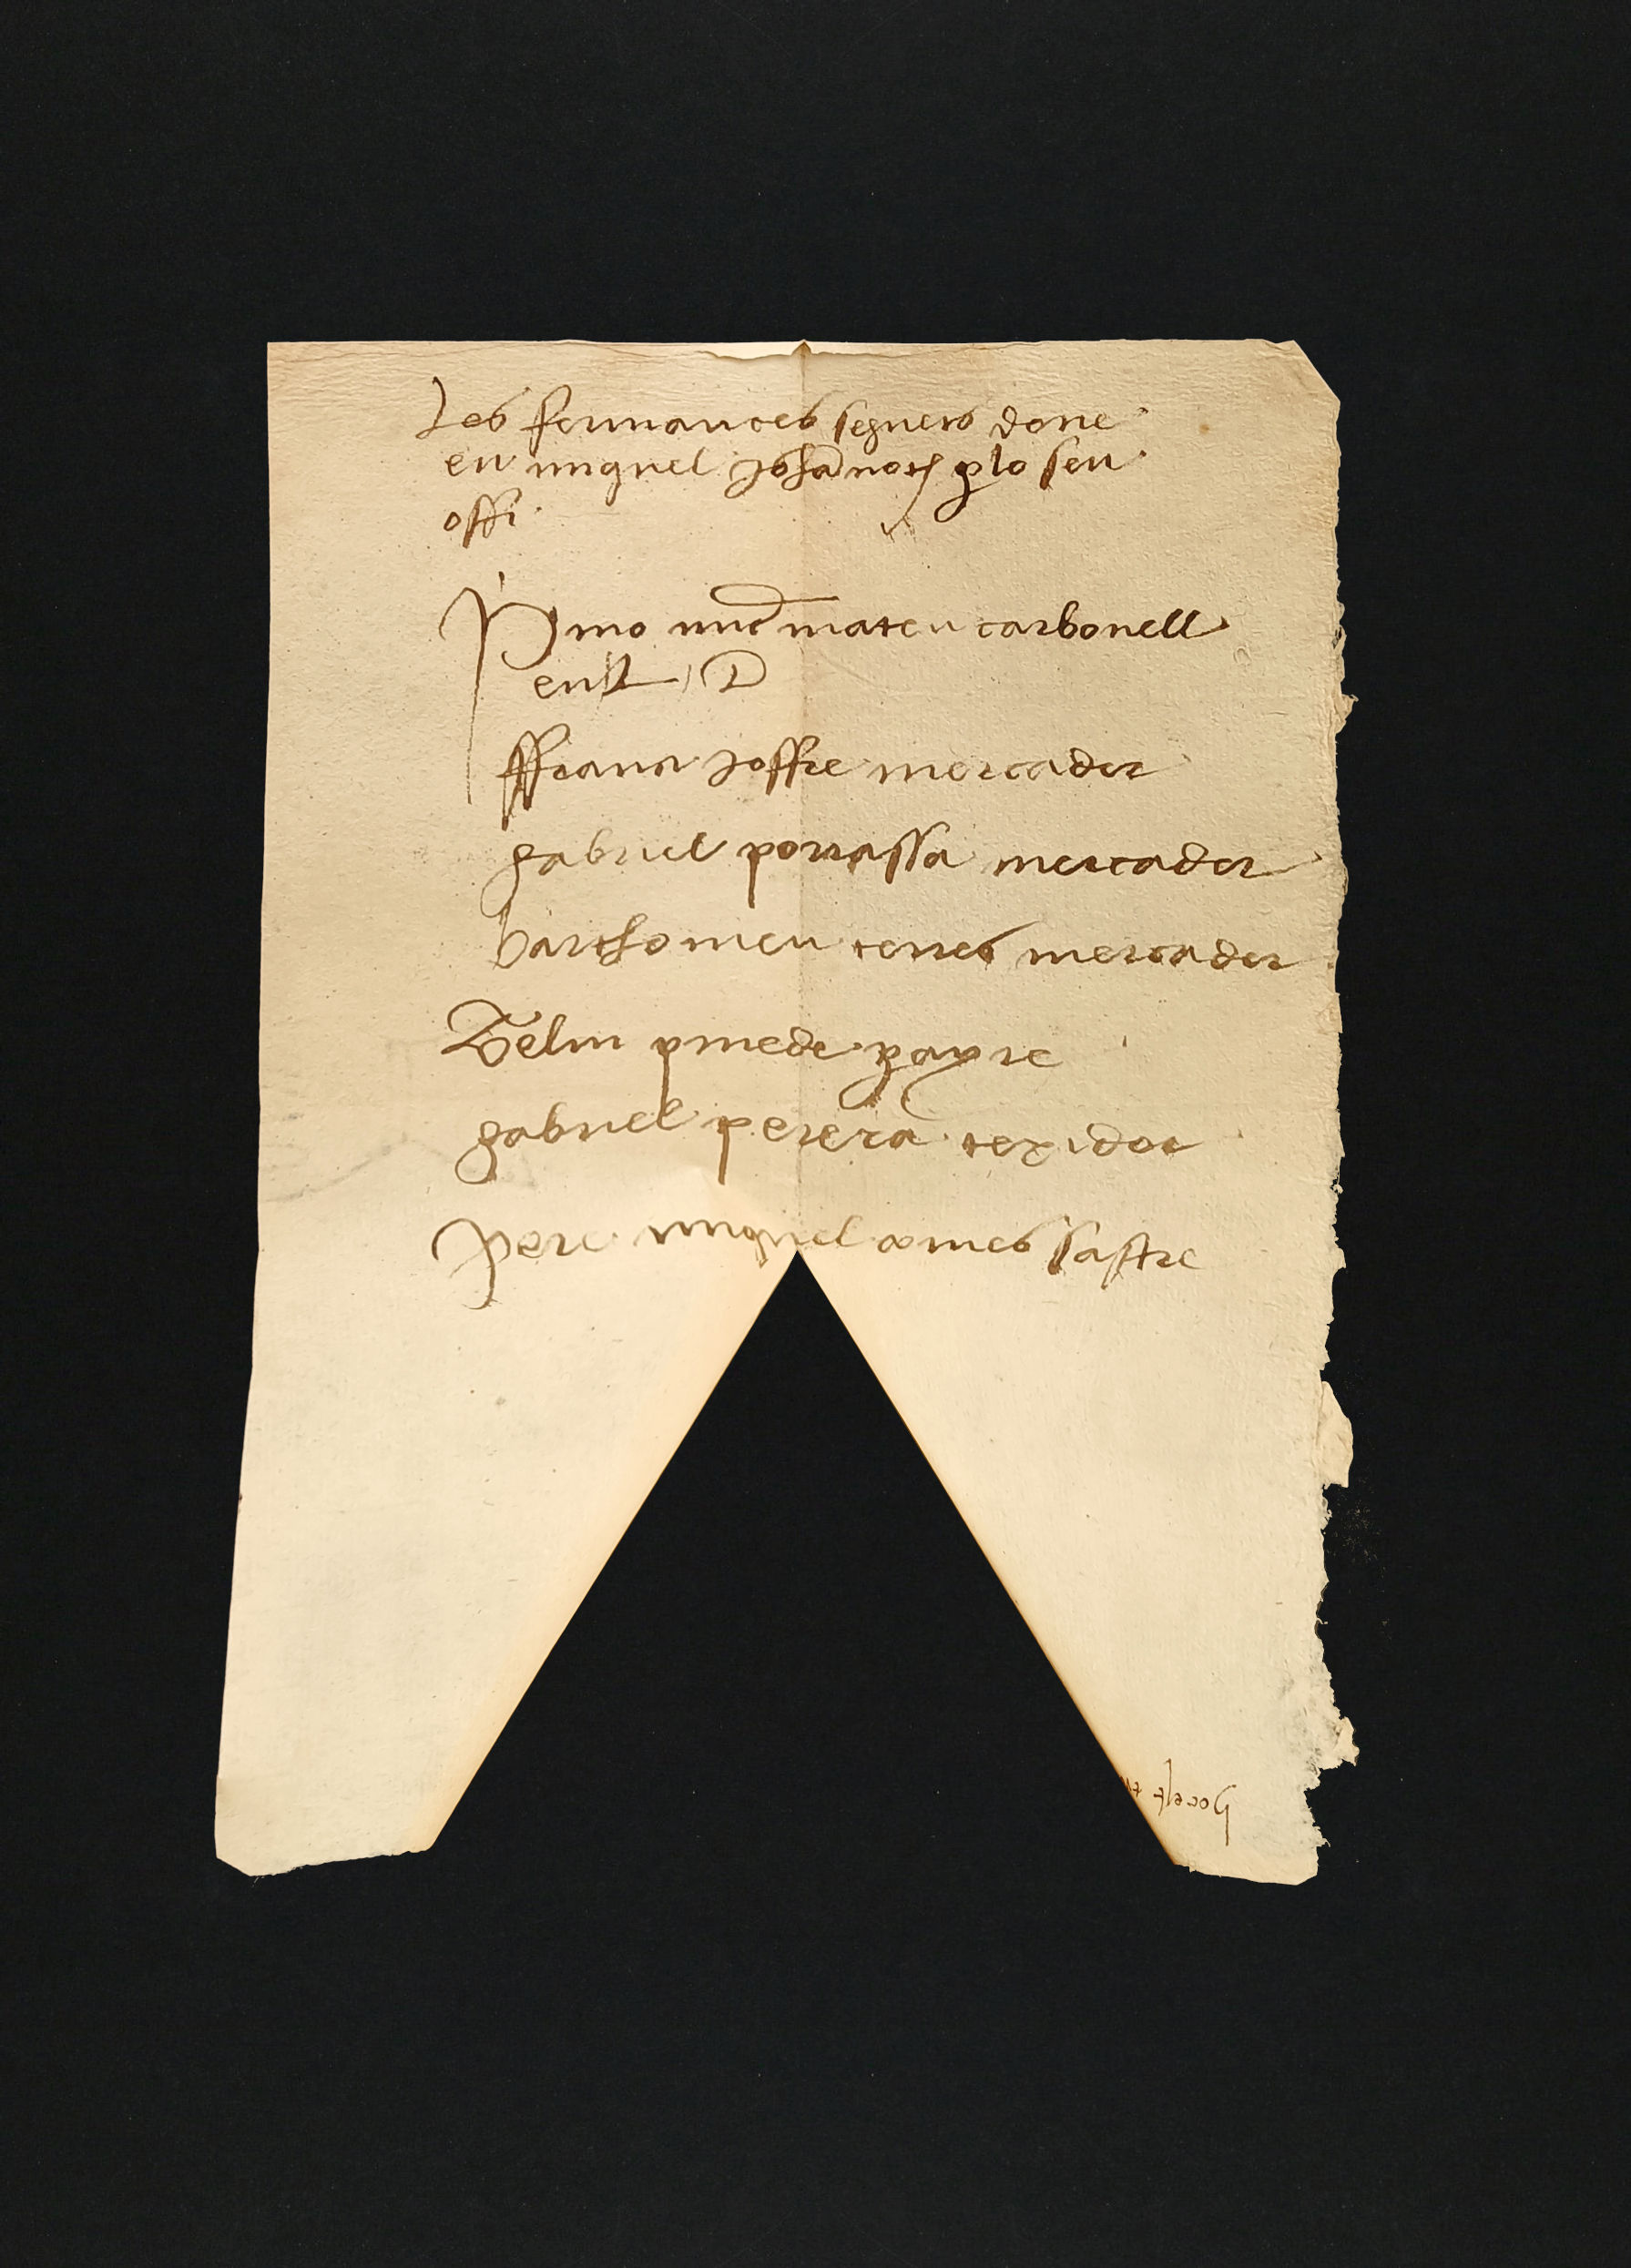 les fermances seguens done
en miquel Johā not̄ p lo seu
offi
Pmo mic̄ mateu carbonell
ffrancı Joffre mercader
gabriel porrassa mercader
barthomeu terres mercader
Telm pmede payre
gabriel perera texidor
Pere miquel ames sastre
hoc est